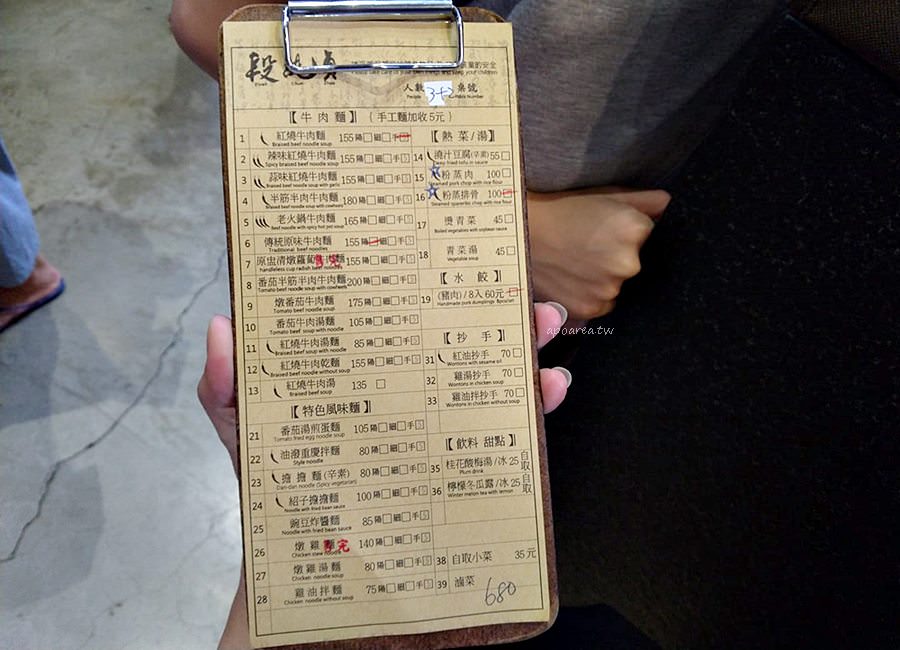 段純貞
Please take care of your belongings and keep your children
人數 3+2 桌號
People Table Number
【牛肉麵】 (手工麵加收5元)
1 紅燒牛肉麵 155 陽□細□手5
Braised beef noodle soup
2 辣味紅燒牛肉麵 155 陽□細□手5
Spicy braised beef noodle soup
3 蒜味紅燒牛肉麵 155 陽□細□手5
Braised beef noodle soup with garlic
4 半筋半肉牛肉麵 180 陽□細□手5
5 老火鍋牛肉麵 165 陽□細□手5
Beef noodle with spicy hot pot soup
6 傳統原味牛肉麵 155 陽□細□手5
Traditional beef noodles
7 原盅清燉蘿蔔牛肉麵 155 陽□細□手5
售完
handleless cup radish beef noodles
8 番茄半筋半肉牛肉麵 200 陽□細□手5
9 燉番茄牛肉麵 175 陽□細□手5
Tomato beef soup with noodle
10 番茄牛肉湯麵 105 陽□細□手5
Tomato beef soup with noodle
11 紅燒牛肉湯麵 85 陽□細□手5
Braised beef soup with noodle
12 紅燒牛肉乾麵 155 陽□細□手5
Braised beef noodle without soup
13 紅燒牛肉湯 135 □
Braised beef soup
【特色風味麵】
21 番茄湯煎蛋麵 105 陽□細□手5
Tomato fried egg noodle soup
22 油潑重慶拌麵 80 陽□細□手5
Style noodle
23 擔擔麵(辛素) 80 陽□細□手5
Dan-dan noodle (Spicy vegetarian)
24 紹子擔擔麵 100 陽□細□手5
Noodle with fried bean sauce
25 豌豆炸醬麵 85 陽□細□手5
Noodle with fried bean sauce
26 燉雞麵 140 陽□細□手5
售完
Chicken stew noodle
27 燉雞湯麵 80 陽□細□手5
Chicken noodle soup
28 雞油拌麵 75 陽□細□手5
Chicken noodle without soup
【熱菜/湯】
14 澆汁豆腐(辛素) 55 □
Deep fried tofu in sauce
15 粉蒸肉 100 □
Steamed pork chop with rice flour
16 粉蒸排骨 100 □
Steamed spareribs chop with rice flour
17 燙青菜 45 □
Boiled vegetables with soybean sauce
18 青菜湯 45 □
Vegetable soup
【水餃】
19 (豬肉)/8入 60元 □
Handmade pork dumplings 8pcs/set
【抄手】
31 紅油抄手 70 □
Wontons with sesame oil
32 雞湯抄手 70 □
Wontons in chicken soup
33 雞油拌抄手 70 □
Wontons in chicken without soup
【飲料 甜點】
35 桂花酸梅湯/冰 25 自取
Plum drink
36 檸檬冬瓜露/冰 25 自取
Winter melon tea with lemon
38 自取小菜 35元
39 滷菜
680
apoarea.tw